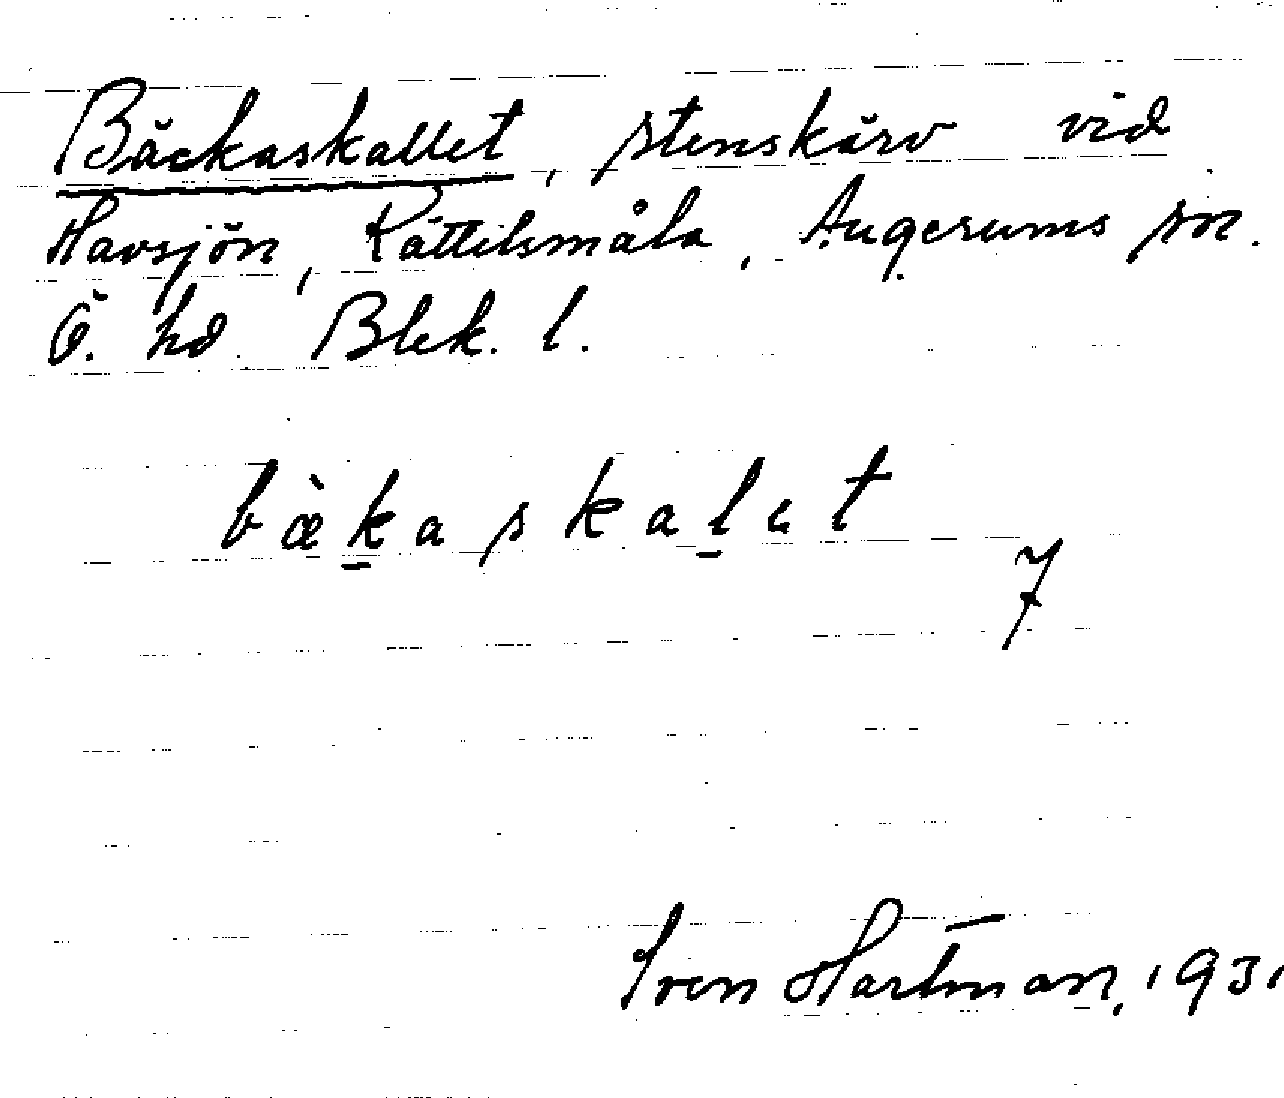 Bäckaskallet, stenskärv vid
Havsjön, Kättilsmåla, Augerums sn.
Ö. hd Blek. l.
bæ̀ḵaskaḻet
7
Sven Hartman, 1931